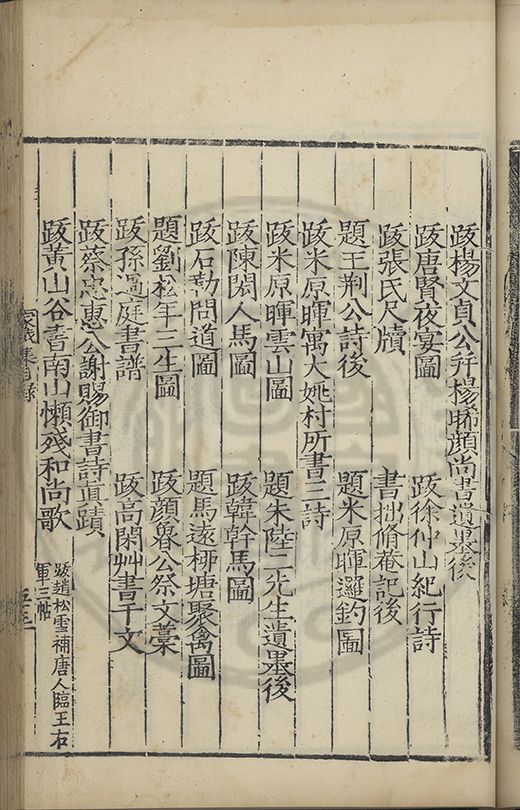 跋楊文貞公并楊晞顏尚書遺墨後
跋唐賢夜宴圖 跋徐仲山紀行詩
跋張氏尺牘 書拙脩菴記後
題王荆公詩後 題米原暉邏釣圖
跋米原暉寓大姚村所書三詩
跋米原暉雲山圖 題朱陸二先生遺墨後
跋陳閎人馬圖 跋韓幹馬圖
跋石勒問道圖 題馬遠栁塘聚禽圖
題劉松年三生圖 跋顏魯公祭文藁
跋孫過庭書譜 跋高閑艸書千文
跋蔡忠惠公謝賜御書詩真蹟
跋黃山谷書南山懶殘和尚歌 跋趙松雪補唐人臨王右
軍三帖
家藏集目錄